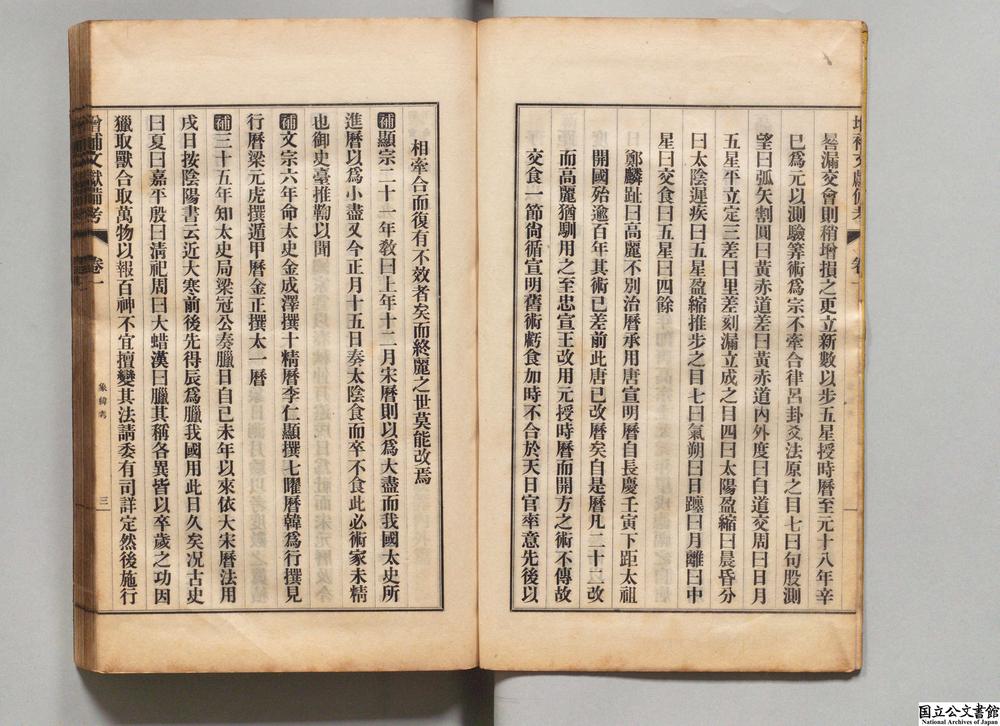 增補文獻備考 卷一
晷漏交會則稍增損之更立新數以步五星授時曆至元十八年辛
巳爲元以測驗筭術爲宗不牽合律呂卦爻法原之目七曰句股測
望曰弧矢割圓曰黃赤道差曰黃赤道內外度曰白道交周曰日月
五星平立定三差曰里差刻漏立成之目四曰太陽盈縮曰晨昏分
曰太陰遲疾曰五星盈縮推步之目七曰氣朔曰日躔曰月離曰中
星曰交食曰五星曰四餘
鄭麟趾曰高麗不別治曆承用唐宣明曆自長慶壬寅下距太祖
開國殆逾百年其術已差前此唐已改曆矣自是曆凡二十二改
而高麗猶馴用之至忠宣王改用元授時曆而開方之術不傳故
交食一節尙循宣明舊術虧食加時不合於天日官率意先後以
相牽合而復有不效者矣而終麗之世莫能改焉
補顯宗二十一年敎曰上年十二月宋曆則以爲大盡而我國太史所
進曆以爲小盡又今正月十五日奏太陰食而卒不食此必術家未精
也御史臺推鞫以聞
補文宗六年命太史金成澤撰十精曆李仁顯撰七曜曆韓爲行撰見
行曆梁元虎撰遁甲曆金正撰太一曆
補三十五年知太史局梁冠公奏臘日自己未年以來依大宋曆法用
戌日按陰陽書云近大寒前後先得辰爲臘我國用此日久矣況古史
曰夏曰嘉平殷曰淸祀周曰大蜡漢曰臘其稱各異皆以卒歲之功因
獵取獸合取萬物以報百神不宜擅變其法請委有司詳定然後施行
增補文獻備考 卷一 象緯考 三
国立公文書館
National Archives of Japan